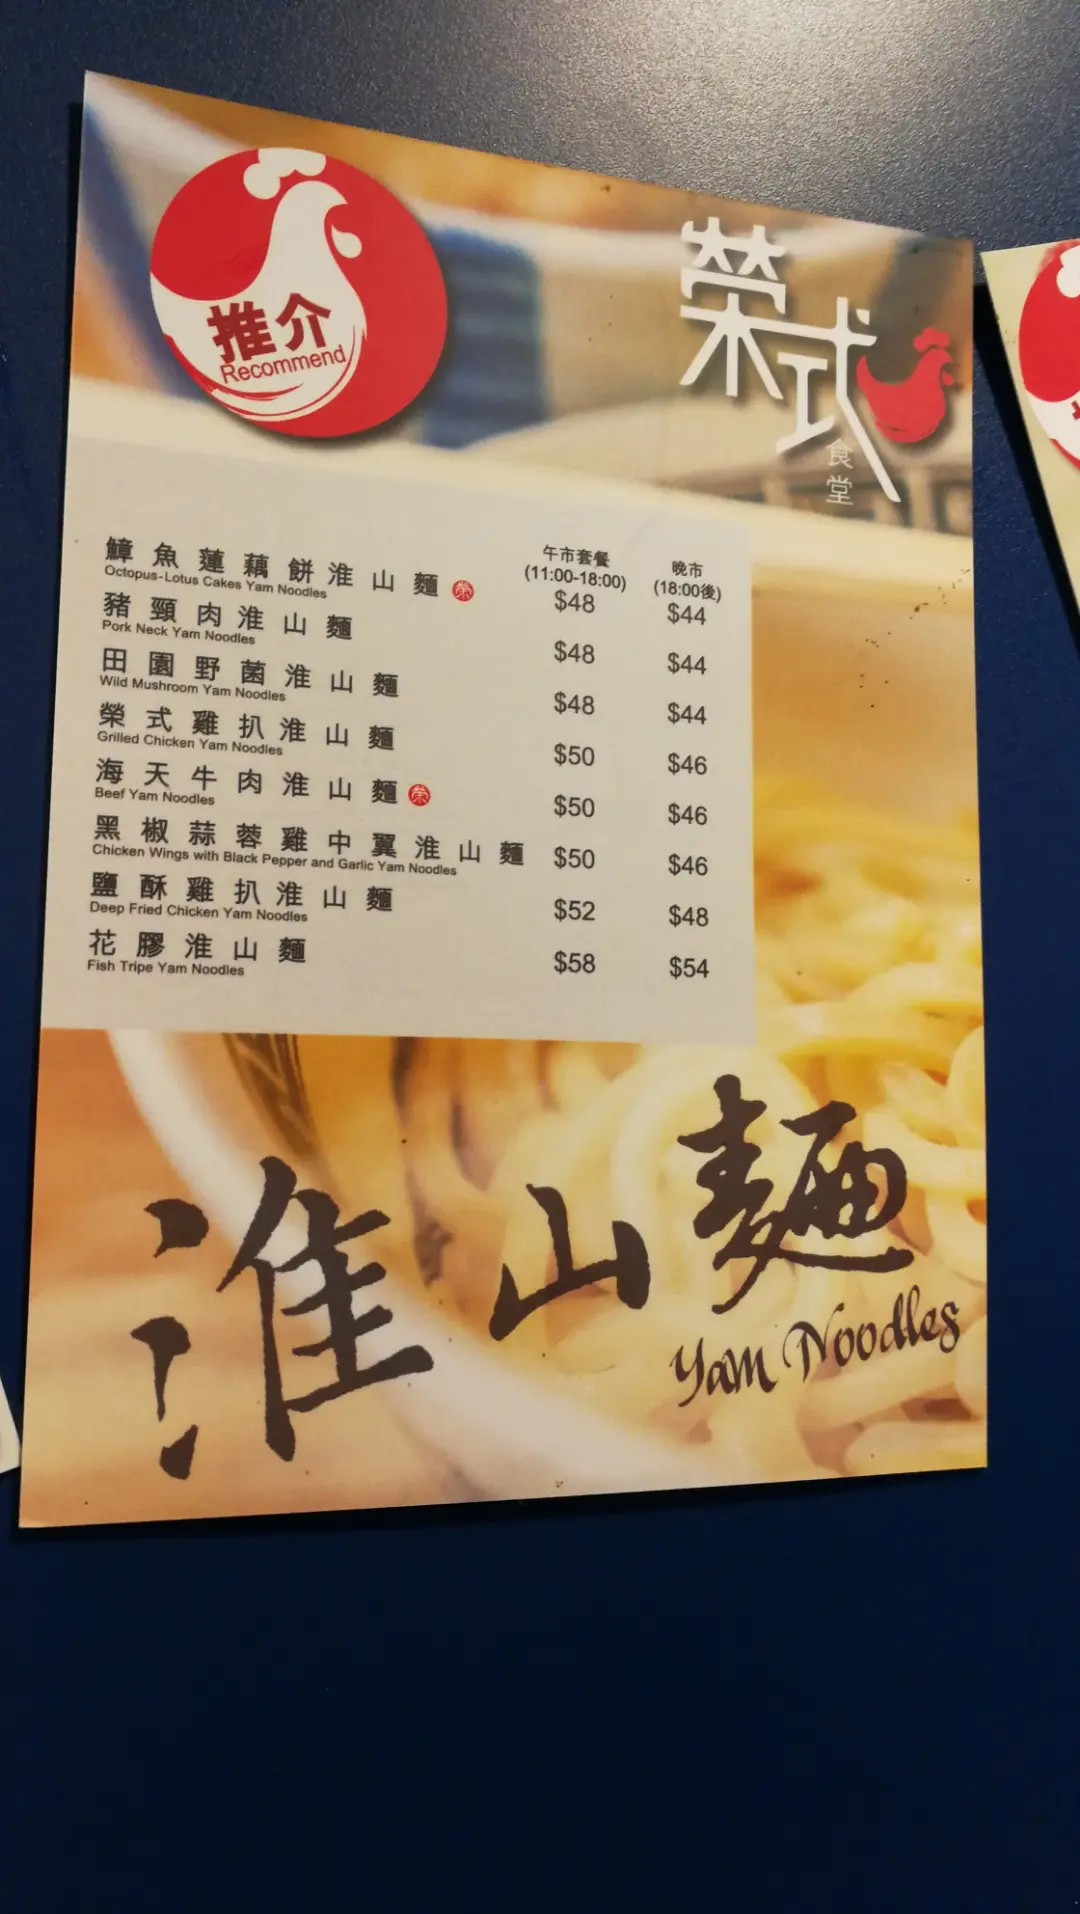 推介
Recommend
榮式
食堂
午市套餐
(11:00-18:00)
晚市
(18:00後)
鱆魚蓮藕餅淮山麵 榮 $48 $44
Octopus-Lotus Cakes Yam Noodles
豬頸肉淮山麵 $48 $44
Pork Neck Yam Noodles
田園野菌淮山麵 $48 $44
Wild Mushroom Yam Noodles
榮式雞扒淮山麵 $50 $46
Grilled Chicken Yam Noodles
海天牛肉淮山麵 榮 $50 $46
Beef Yam Noodles
黑椒蒜蓉雞中翼淮山麵 $50 $46
Chicken Wings with Black Pepper and Garlic Yam Noodles
鹽酥雞扒淮山麵 $52 $48
Deep Fried Chicken Yam Noodles
花膠淮山麵 $58 $54
Fish Tripe Yam Noodles
淮山麵
Yam Noodles